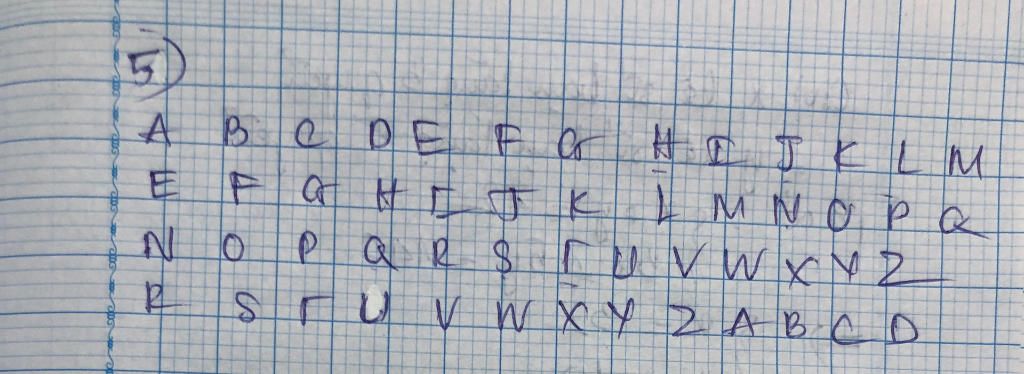 5)
A B C D E F G H I J K L M
E F G H I J K L M N O P Q
N O P Q R S T U V W X Y Z
R S T U V W X Y Z A B C D